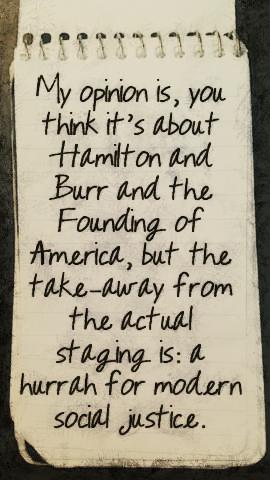 My opinion is, you
think it's about
Hamilton and
Burr and the
Founding of
America, but the
take-away from
the actual
staging is: a
hurrah for modern
social justice.